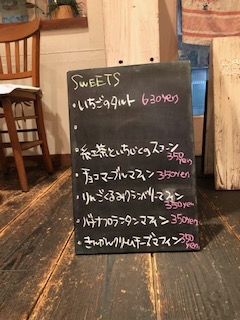 SWEETS
・いちごのタルト 630yen
・紅茶といちじくのスコーン 350yen
・チョコマーブルマフィン 350yen
・りんごくるみクランベリーマフィン 350yen
・バナナプランタンマフィン 350yen
・きんかんクリームチーズマフィン 350yen